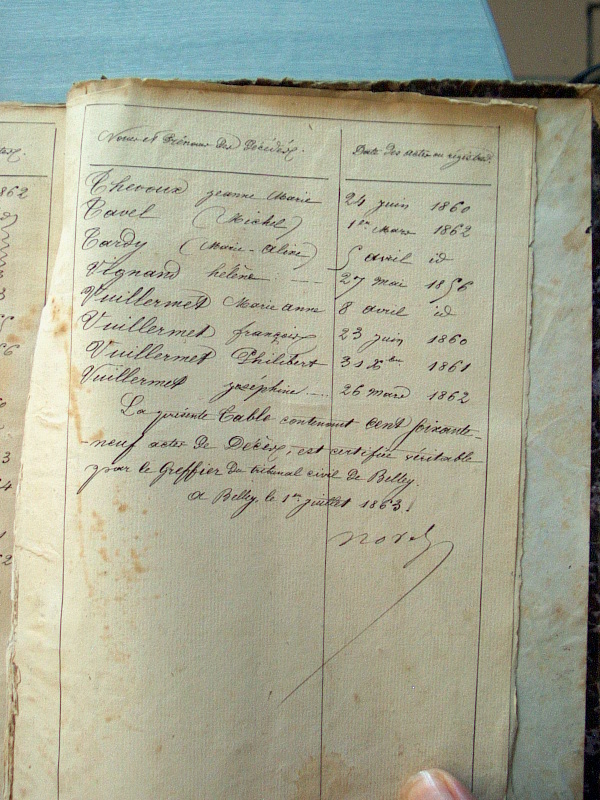 Noms et Prénoms des Décédés. Date des actes au registre.
Thevoux jeanne Marie 24 juin 1860
Tavel (Michel) 1er Mars 1862
Tardy (Marie-Aline) 5 avril id
Vignand hélène 27 mai 1856
Vuillermet Marie anne 8 avril id
Vuillermet françois 23 juin 1860
Vuillermet Philibert 31 Xbre 1861
Vuillermet josephine 26 mars 1862
La présente Table contenant cent soixante-
-neuf actes de Décès, est certifiée véritable
par le Greffier du tribunal civil de Belley.
a Belley le 1er juillet 1863.
1862